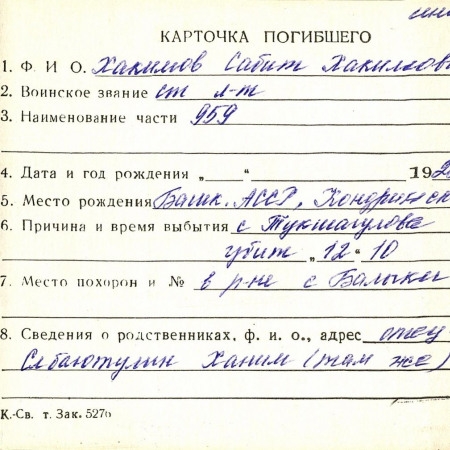 КАРТОЧКА ПОГИБШЕГО
1. Ф. И О. Хакимов Сабит Хакимов
2. Воинское звание ст л-т
3. Наименование части 959
4. Дата и год рождения „ “ 192
5. Место рождения Башк. АССР, Кондринск
6. Причина и время выбытия с Тукмагулова
убит „12“ 10
7. Место похорон и № в р-не с Балыкы
8. Сведения о родственниках, ф. и о., адрес отец
Ханим (там же)
К.-Св. т. Зак. 527о